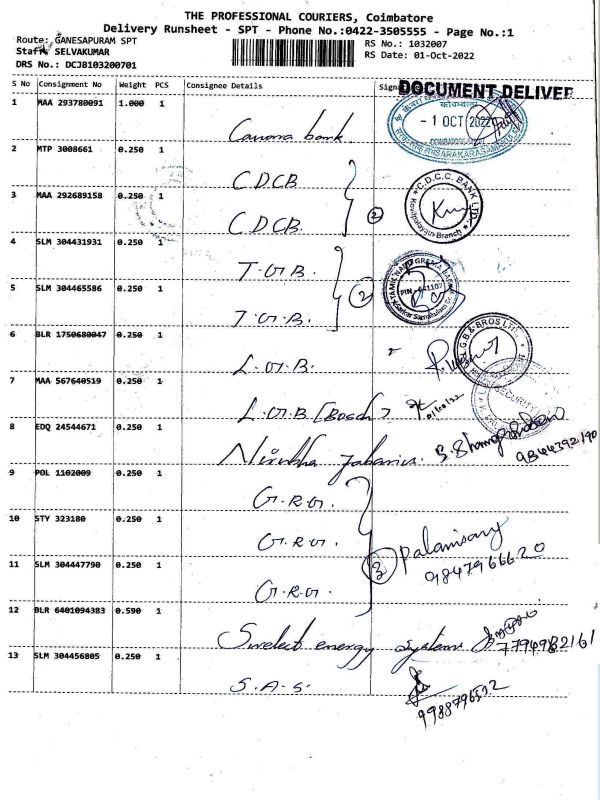 THE PROFESSIONAL COURIERS, Coimbatore
Delivery Runsheet - SPT - Phone No.:0422-3505555 - Page No.:1
Route: GANESAPURAM SPT
RS No.: 1032007
Staff: SELVAKUMAR
RS Date: 01-Oct-2022
DRS No.: DCJB103200701
S No Consignment No Weight PCS Consignee Details
DOCUMENT DELIVER
1 MAA 293780091 1.000 1 Canara bank
- 1 OCT 2022
2 MTP 3008661 0.250 1 C.D.C.B
3 MAA 292689158 0.250 1 C.D.C.B. 2
C.D.C.C. BANK LTD.
Branch
4 SLM 304431931 0.250 1 T.G.B.
5 SLM 304465586 0.250 1 T.G.B. 2
TAMIL NADU GRAMA BANK
PIN - 641107
6 BLR 1750680047 0.250 1 L.G.B.
L.G.B & BROS LTD
7 MAA 567640519 0.250 1 L.G.B [Bosch]
SECURITY
8 EDQ 24544671 0.250 1
9844392190
9 POL 1102009 0.250 1 G.R.G.
10 STY 323180 0.250 1 G.R.G.
11 SLM 304447790 0.250 1 G.R.G. 3 Palanisamy
9847966620
12 BLR 6401094383 0.590 1 Swelect energy systems
7794982161
13 SLM 304456805 0.250 1 S.A.S.